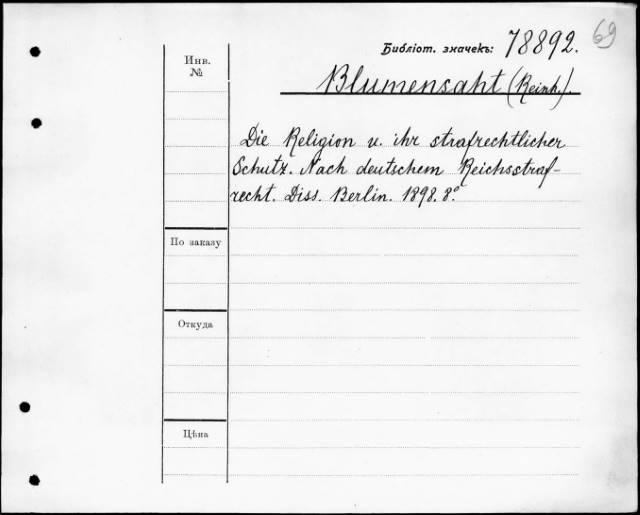 69
Библіот. значекъ: 78892.
Инв.
№
Blumensaht (Reinh.).
Die Religion u. ihr strafrechtlicher
Schutz. Nach deutschem Reichsstraf-
recht. Diss. Berlin. 1898. 8.º
По заказу
Откуда
Цѣна